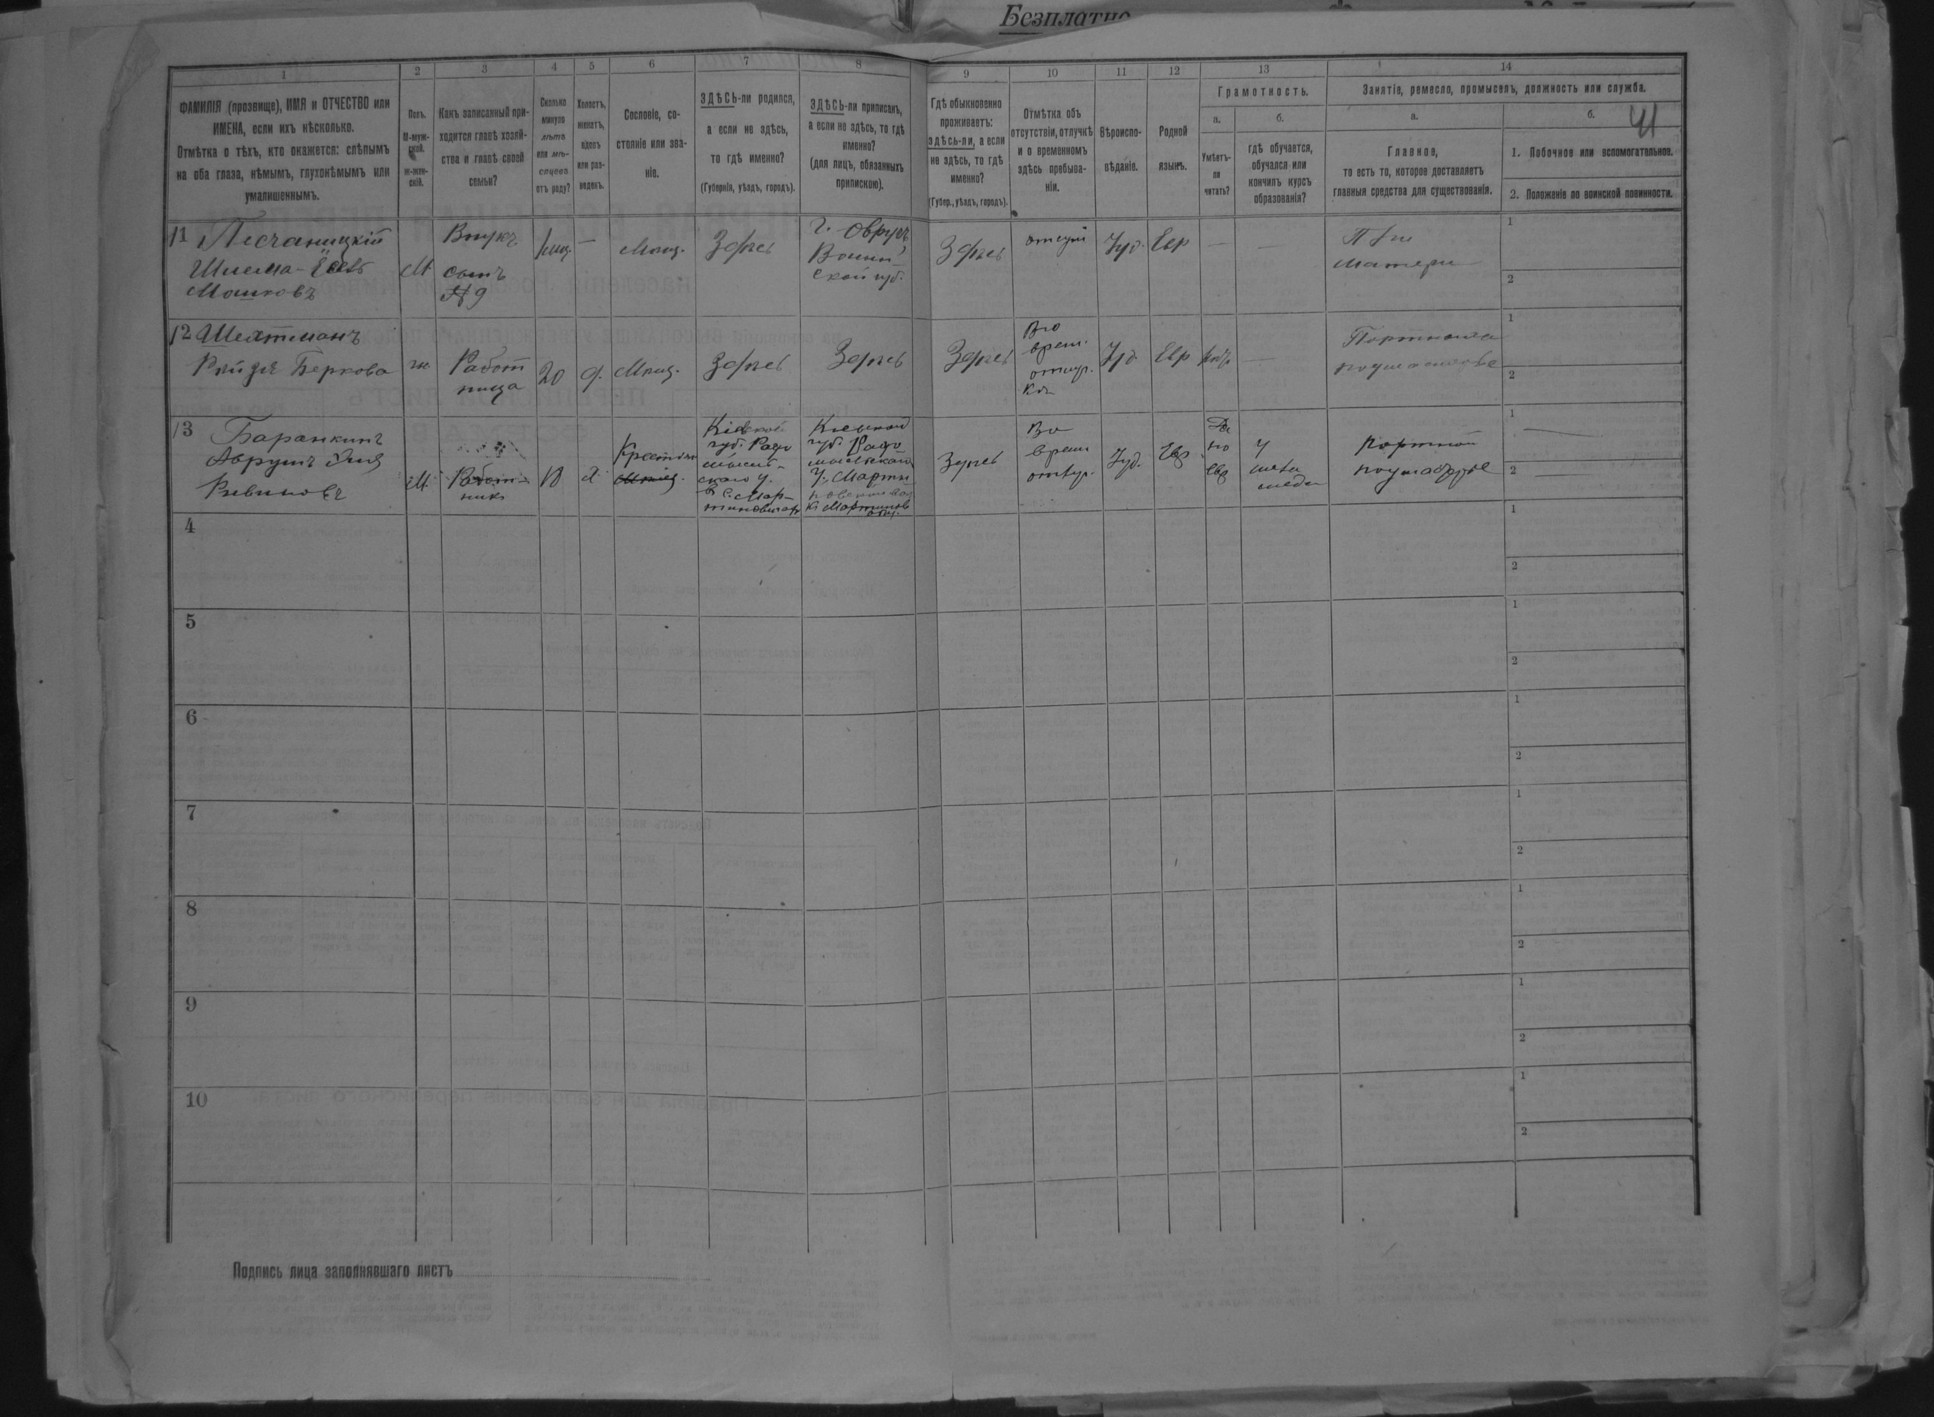 Безплатно
41
1 2 3 4 5 6 7 8 9 10 11 12 13 14
ФАМИЛІЯ (прозвище), ИМЯ и ОТЧЕСТВО или
ИМЕНА, если ихъ нѣсколько.
Отмѣтка о тѣхъ, кто окажется: слѣпымъ
на оба глаза, нѣмымъ, глухонѣмымъ или
умалишеннымъ.
Полъ.
М-муж-
ской.
ж-жен-
скій.
Какъ записанный при-
ходится главѣ хозяй-
ства и главѣ своей
семьи?
Сколько
минуло
лѣтъ
или мѣ-
сяцевъ
отъ роду?
Холостъ,
женатъ,
вдовъ
или раз-
веденъ.
Сословіе, со-
стояніе или зва-
ніе.
ЗДѢСЬ-ли родился,
а если не здѣсь,
то гдѣ именно?
(Губернія, уѣздъ, городъ).
ЗДѢСЬ-ли приписанъ,
а если не здѣсь, то гдѣ
именно?
(для лицъ, обязанныхъ
припискою).
Гдѣ обыкновенно
проживаетъ:
здѣсь-ли, а если
не здѣсь, то гдѣ
именно?
(Губер., уѣздъ, городъ).
Отмѣтка объ
отсутствіи, отлучкѣ
и о временномъ
здѣсь пребыва-
ніи.
Вѣроиспо-
вѣданіе.
Родной
языкъ.
Грамотность.
а.
Умѣетъ-
ли
читать?
б.
гдѣ обучается,
обучался или
кончилъ курсъ
образованія?
Занятіе, ремесло, промыселъ, должность или служба.
а.
Главное,
то есть то, которое доставляетъ
главныя средства для существованія.
б.
1. Побочное или вспомогательное.
2. Положеніе по воинской повинности.
11 Песчаницкій
Шлема-
Мошковъ
М
Внукъ
сынъ
№ 9
—
Мѣщ.
Здѣсь
г. Овручъ,
Волын-
ской губ.
Здѣсь
Іуд.
Евр
—
—
При
матери
1
2
12 Шехтманъ
Рейзя Беркова
ж
Работ
ница
20
д.
Мѣщ.
Здѣсь
Здѣсь
Здѣсь
Во
врем.
отлуч.
кѣ
Іуд.
Евр
нѣтъ
—
Портниха
1
2
13 Баранкинъ
Аврумъ
Ривиновъ
М
Работ-
никъ
18
х
Крестьян
Кіевской
губ. Радо
мысль-
скаго у.
с. Мар-
тиновичахъ
Кіевской
губ. Радо
мысльскаго
у. Марти
новской вол
Здѣсь
Во
врем
отлуч.
Іуд.
Евр
Да
по
евр
У
мела
меда
Портной
1
2
4
1
2
5
1
2
6
1
2
7
1
2
8
1
2
9
1
2
10
1
2
Подпись лица заполнявшаго листъ